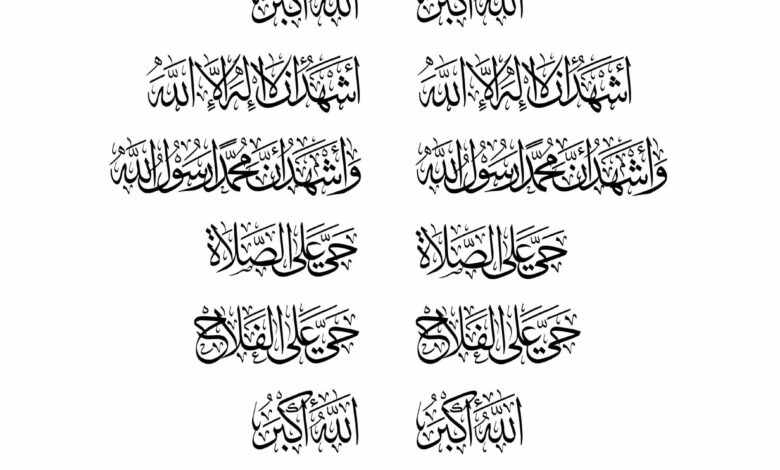 اللهُ أَكْبَرُ اللهُ أَكْبَرُ
أَشْهَدُ أَنْ لَا إِلٰهَ إِلَّا اللهُ أَشْهَدُ أَنْ لَا إِلٰهَ إِلَّا اللهُ
وَأَشْهَدُ أَنَّ مُحَمَّدًا رَسُولُ اللهِ وَأَشْهَدُ أَنَّ مُحَمَّدًا رَسُولُ اللهِ
حَيَّ عَلَى الصَّلَاةِ حَيَّ عَلَى الصَّلَاةِ
حَيَّ عَلَى الفَلَاحِ حَيَّ عَلَى الفَلَاحِ
اللهُ أَكْبَرُ اللهُ أَكْبَرُ